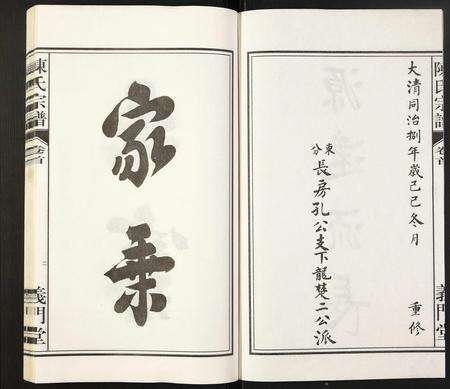 陳氏宗譜
卷首
義門堂
大清同治捌年歲己巳冬月
重修
東分長房孔公支下龍楚二公派
家乗
陳氏宗譜
卷首
義門堂